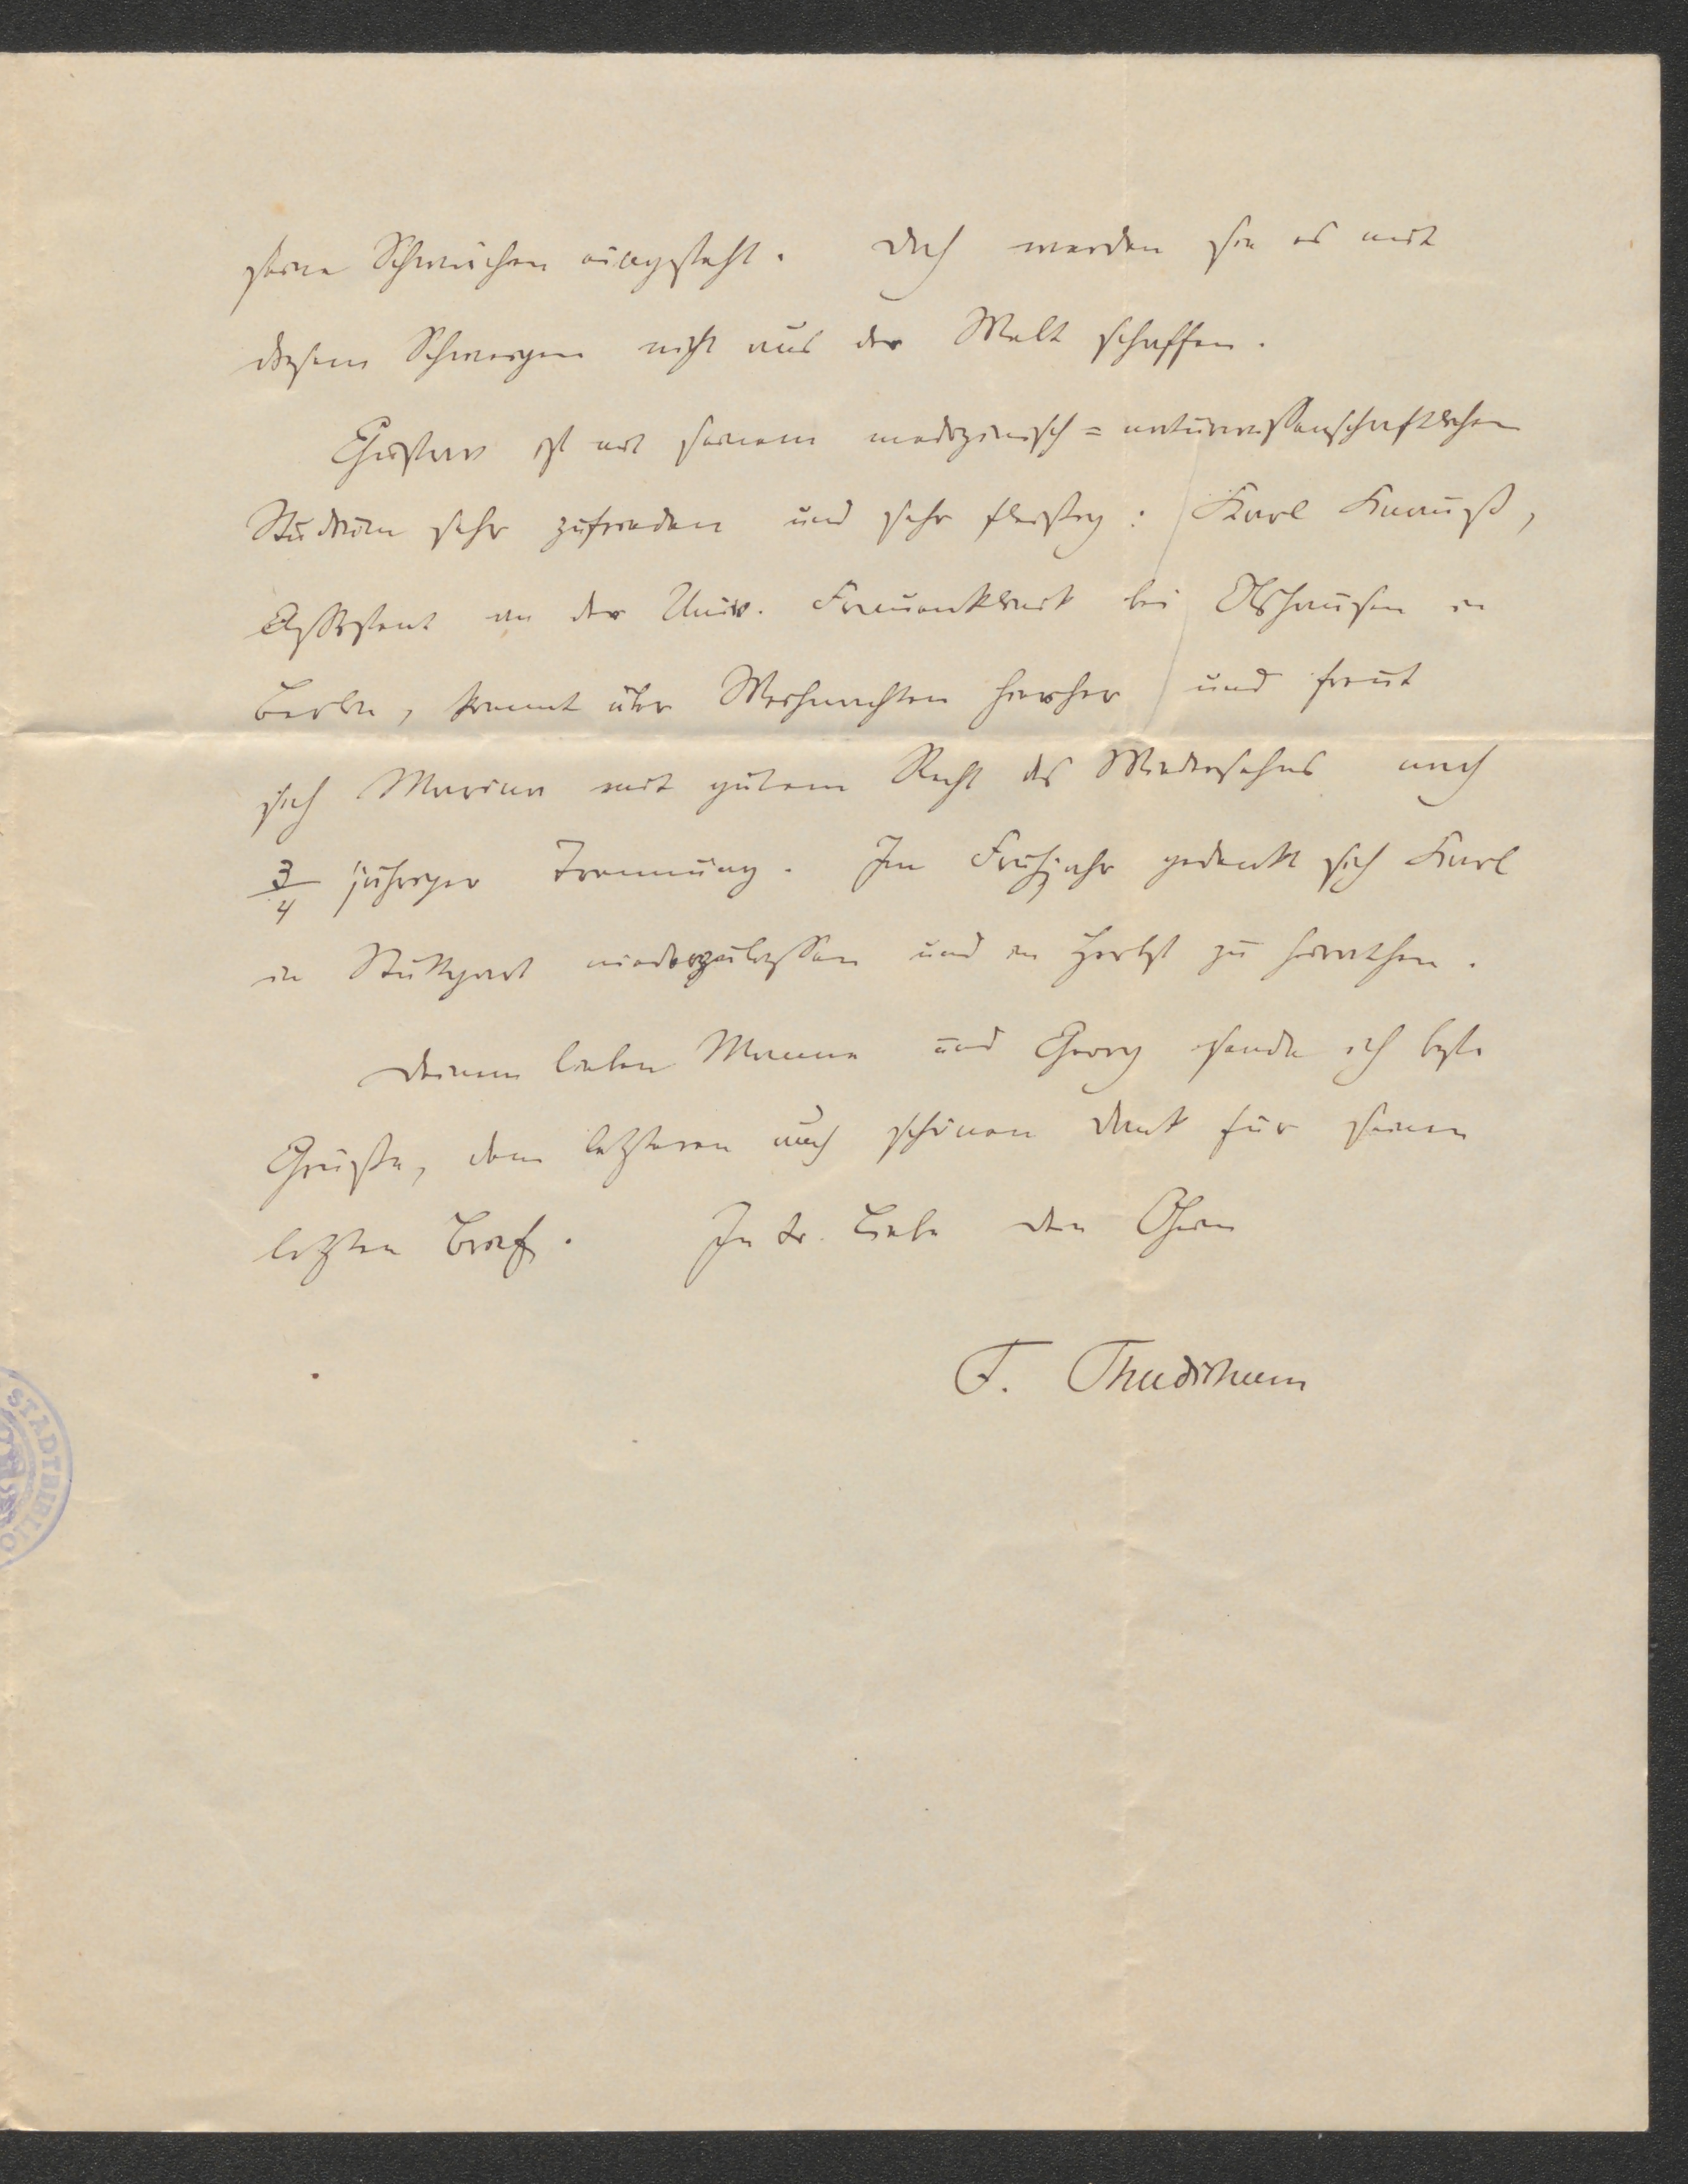 seine Schwächen eingesteht. Doch werden sie es mit
diesem Schweigen nicht aus der Welt schaffen.
Gustav ist mit seinem medizinisch=naturwissenschaftlichen
Studium sehr zufrieden und sehr fleißig: Karl Knauß,
Assistent an der Univ. Frauenklinik bei Olshausen in
Berlin, kommt über Weihnachten hierher und freut
sich Marina mit gutem Recht des Wiedersehns nach
3/4 jähriger Trennung. Im Frühjahr gedenkt sich Karl
in Stuttgart niederzulassen und im Herbst zu heirathen.
Deinem lieben Manne und Georg sende ich beste
Grüße, dem letzteren auch schönen Dank für seinen
letzten Brief. In tr. Liebe Dein Oheim
F. Thudichum
STADTBIBLIO